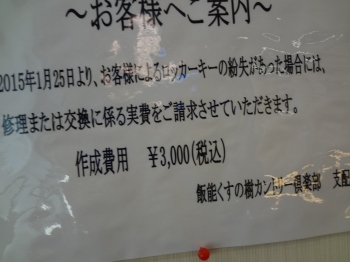 ～お客様へご案内～
2015年1月25日より、お客様によるロッカーキーの紛失があった場合には、
修理または交換に係る実費をご請求させていただきます。
作成費用　￥3,000(税込)
飯能くすの樹カントリー倶楽部　支配